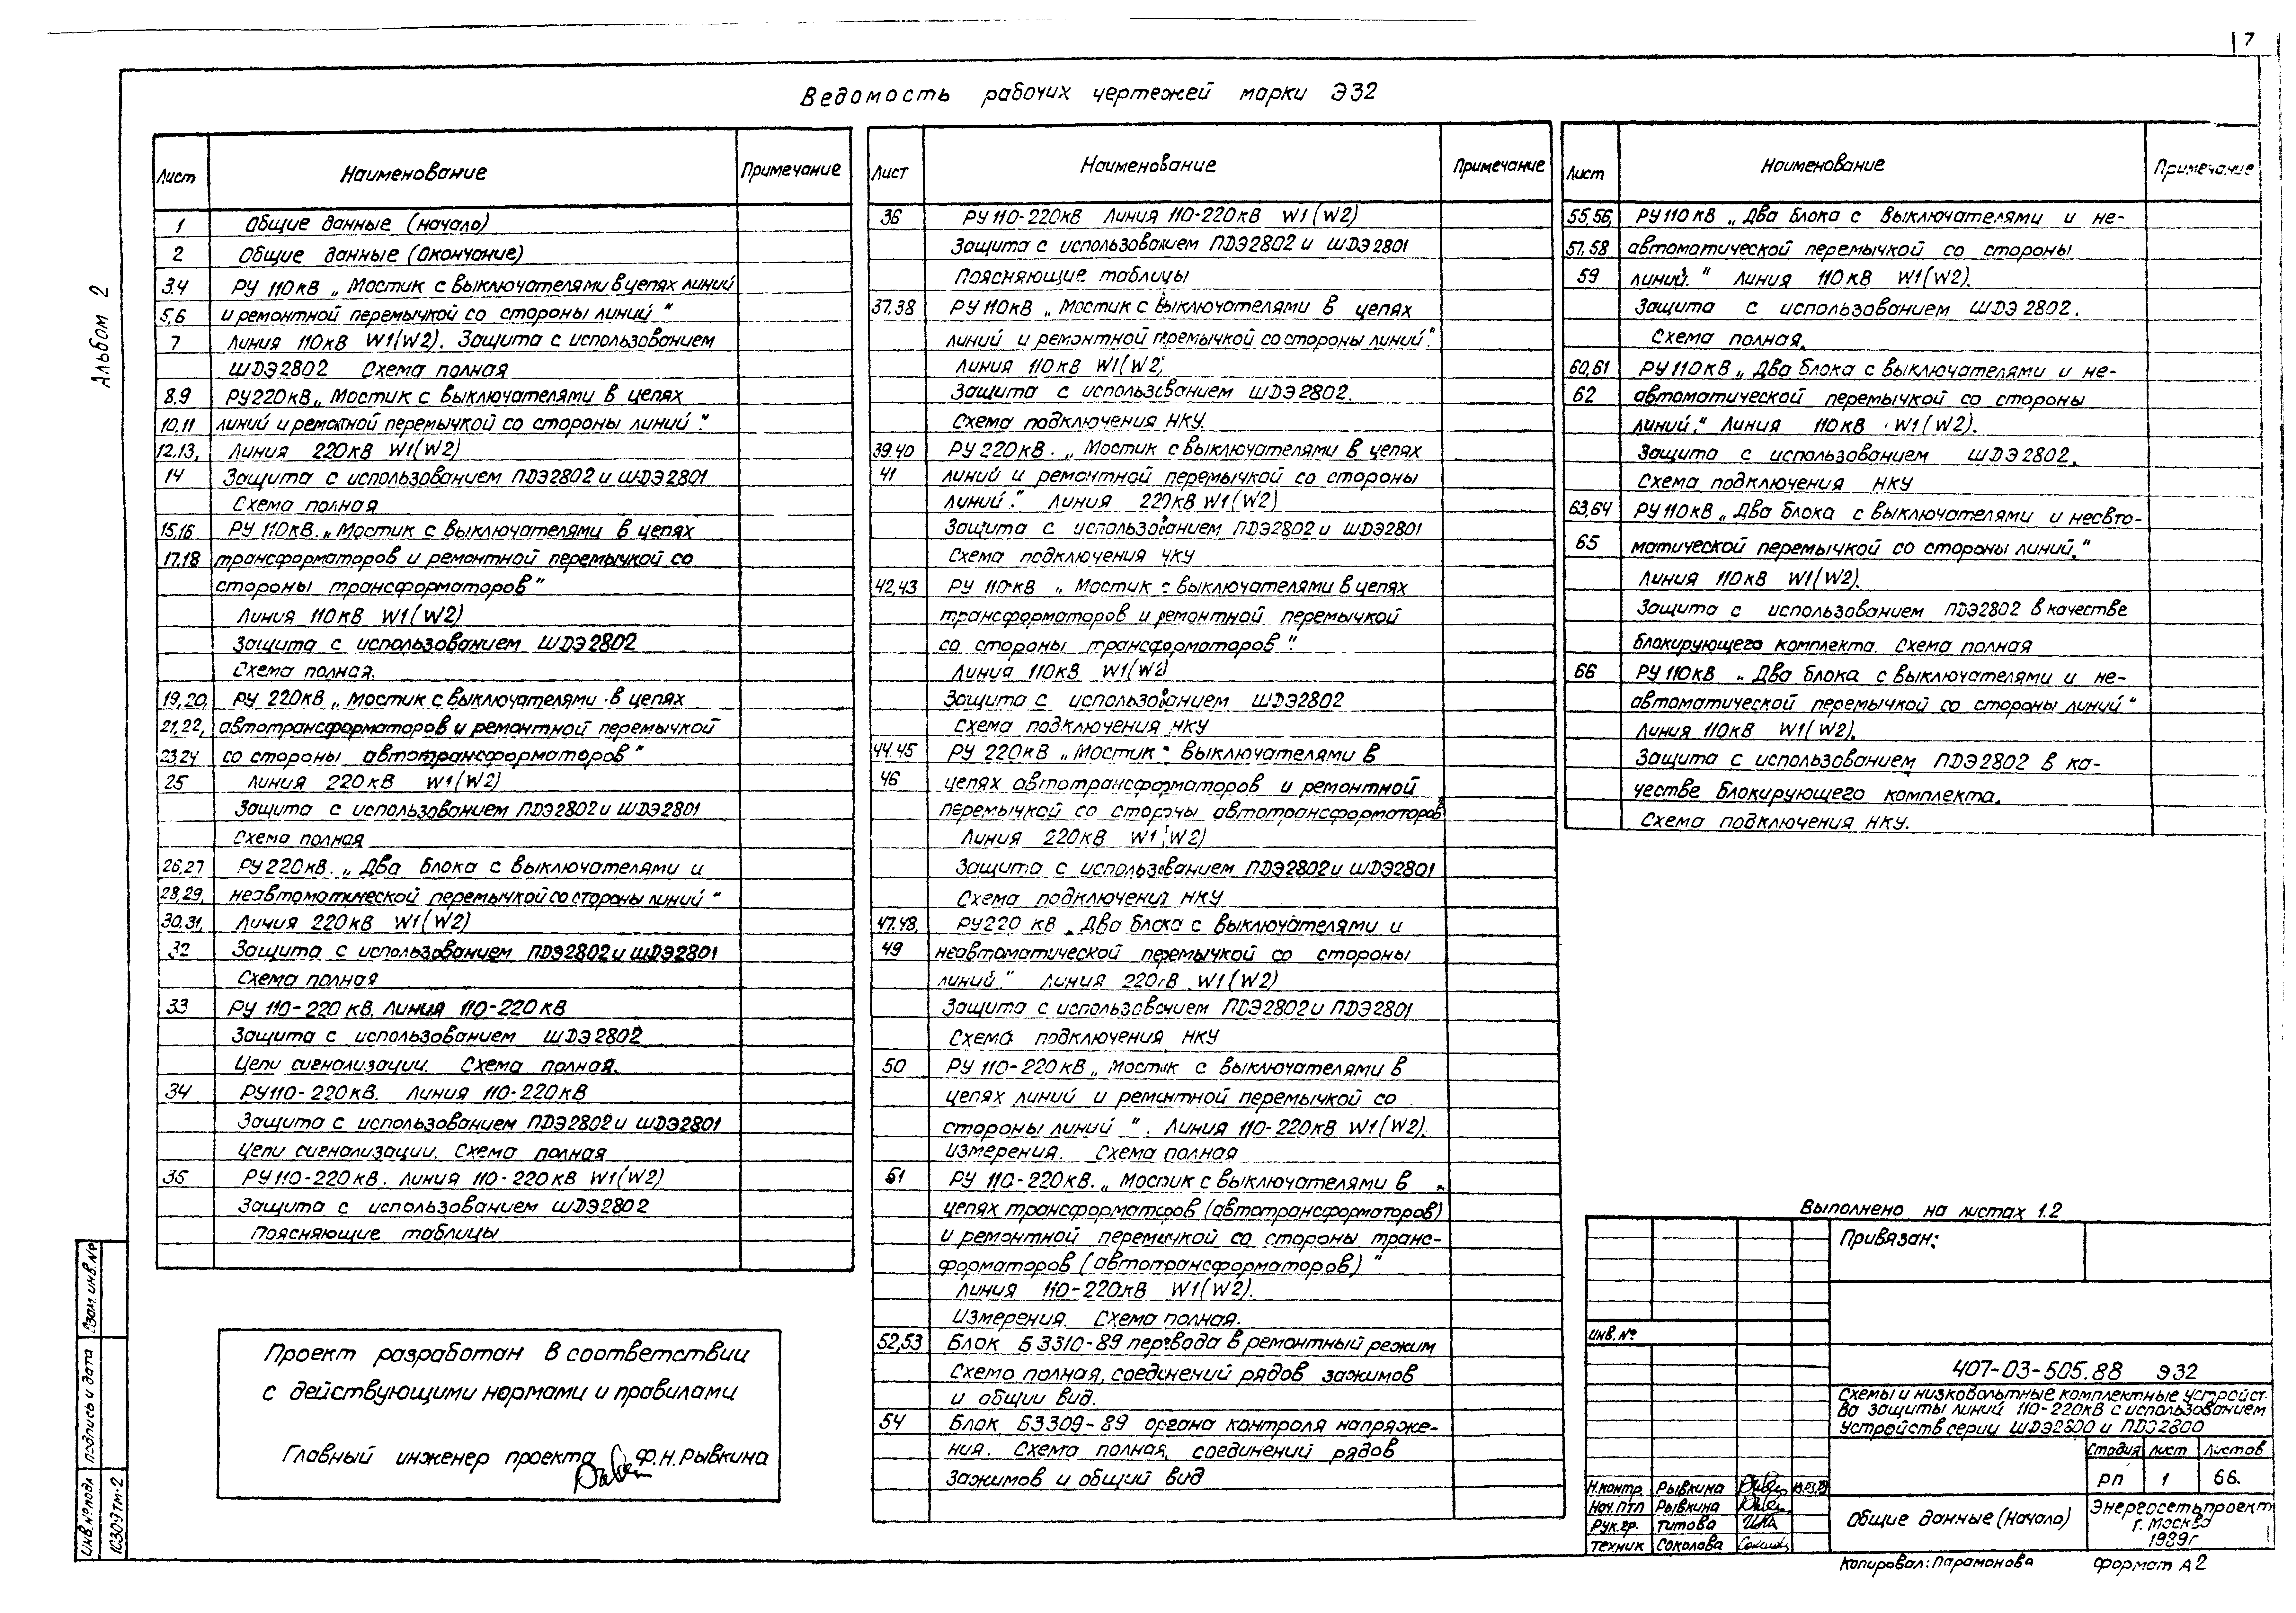 7
Альбом 2
Ведомость рабочих чертежей марки ЭЗ2
Лист Наименование Примечание
1 Общие данные (начало)
2 Общие данные (Окончание)
3,4 РУ 110кВ „Мостик с выключателями в цепях линий
5,6 и ремонтной перемычкой со стороны линий"
7 Линия 110кВ W1(W2). Защита с использованием
ШДЭ2802 Схема полная
8,9 РУ220кВ „Мостик с выключателями в цепях
10,11 линий и ремонтной перемычкой со стороны линий".
12,13, Линия 220кВ W1(W2)
14 Защита с использованием ПДЭ2802 и ШДЭ2801
Схема полная
15,16 РУ 110кВ. „Мостик с выключателями в цепях
17,18 трансформаторов и ремонтной перемычкой со
стороны трансформаторов"
Линия 110кВ W1(W2)
Защита с использованием ШДЭ2802
Схема полная.
19,20, РУ 220кВ „Мостик с выключателями в цепях
21,22, автотрансформаторов и ремонтной перемычкой
23,24 со стороны автотрансформаторов"
25 Линия 220кВ W1(W2)
Защита с использованием ПДЭ2802 и ШДЭ2801
Схема полная
26,27 РУ220кВ. „Два блока с выключателями и
28,29, неавтоматической перемычкой со стороны линий"
30,31, Линия 220кВ W1(W2)
32 Защита с использованием ПДЭ2802 и ШДЭ2801
Схема полная
33 РУ 110-220кВ. Линия 110-220кВ
Защита с использованием ШДЭ2802
Цепи сигнализации. Схема полная.
34 РУ110-220кВ. Линия 110-220кВ
Защита с использованием ПДЭ2802 и ШДЭ2801
Цепи сигнализации. Схема полная
35 РУ110-220кВ. Линия 110-220кВ W1(W2)
Защита с использованием ШДЭ2802
Поясняющие таблицы
Лист Наименование Примечание
36 РУ110-220кВ Линия 110-220кВ W1(W2)
Защита с использованием ПДЭ2802 и ШДЭ2801
Поясняющие таблицы
37,38 РУ110кВ „Мостик с выключателями в цепях
линий и ремонтной перемычкой со стороны линий".
Линия 110кВ W1(W2)
Защита с использованием ШДЭ2802.
Схема подключения НКУ.
39,40 РУ220кВ. „Мостик с выключателями в цепях
41 линий и ремонтной перемычкой со стороны
линий". Линия 220кВ W1(W2)
Защита с использованием ПДЭ2802 и ШДЭ2801
Схема подключения НКУ
42,43 РУ 110кВ „Мостик с выключателями в цепях
трансформаторов и ремонтной перемычкой
со стороны трансформаторов".
Линия 110кВ W1(W2)
Защита с использованием ШДЭ2802
Схема подключения НКУ
44,45 РУ 220кВ „Мостик с выключателями в
46 цепях автотрансформаторов и ремонтной
перемычкой со стороны автотрансформаторов"
Линия 220кВ W1(W2)
Защита с использованием ПДЭ2802 и ШДЭ2801
Схема подключения НКУ
47,48, РУ220 кВ „Два блока с выключателями и
49 неавтоматической перемычкой со стороны
линий." Линия 220кВ W1(W2)
Защита с использованием ПДЭ2802 и ПДЭ2801
Схема подключения НКУ
50 РУ 110-220кВ „Мостик с выключателями в
цепях линий и ремонтной перемычкой со
стороны линий". Линия 110-220кВ W1(W2).
Измерения. Схема полная
51 РУ 110-220кВ. „Мостик с выключателями в
цепях трансформаторов (автотрансформаторов)
и ремонтной перемычкой со стороны транс-
форматоров (автотрансформаторов)"
Линия 110-220кВ W1(W2).
Измерения. Схема полная.
52,53 Блок БЭ310-89 перевода в ремонтный режим
Схема полная, соединений рядов зажимов
и общий вид.
54 Блок БЭ309-89 органа контроля напряже-
ния. Схема полная, соединений рядов
зажимов и общий вид
Лист Наименование Примечание
55,56, РУ110кВ „Два блока с выключателями и не-
57,58 автоматической перемычкой со стороны
59 линий." Линия 110кВ W1(W2).
Защита с использованием ШДЭ2802.
Схема полная.
60,61 РУ110кВ „Два блока с выключателями и не-
62 автоматической перемычкой со стороны
линий." Линия 110кВ W1(W2).
Защита с использованием ШДЭ2802.
Схема подключения НКУ
63,64 РУ110кВ „Два блока с выключателями и неавто-
65 матической перемычкой со стороны линий."
Линия 110кВ W1(W2).
Защита с использованием ПДЭ2802 в качестве
блокирующего комплекта. Схема полная
66 РУ110кВ „Два блока с выключателями и не-
автоматической перемычкой со стороны линий"
Линия 110кВ W1(W2).
Защита с использованием ПДЭ2802 в ка-
честве блокирующего комплекта.
Схема подключения НКУ.
Проект разработан в соответствии
с действующими нормами и правилами
Главный инженер проекта Ф.Н. Рывкина
Выполнено на листах 1.2
Привязан:
Инв.№
407-03-505.88 ЭЗ2
Схемы и низковольтные комплектные устройст-
ва защиты линий 110-220кВ с использованием
устройств серии ШДЭ2800 и ПДЭ2800
Стадия Лист Листов
РП 1 66.
Н.контр. Рывкина
Нач.ПТП Рывкина
Рук.гр. Титова
Техник Соколова
Общие данные (Начало)
Энергосетьпроект
г. Москва
1989г
Копировал: Парамонова Формат А2
Взам. инв.№
Подпись и дата
Инв.№ подл.
10309тм-2